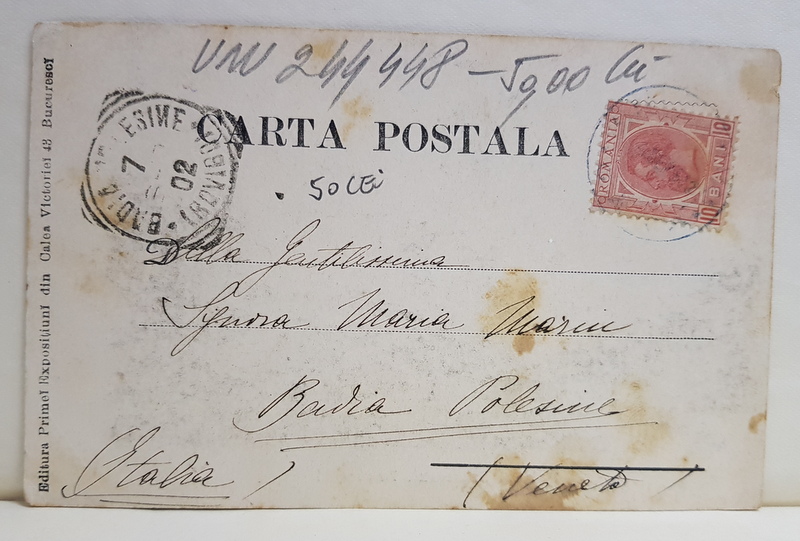 244448 - 5900 lei
CARTA POSTALA
50 LEI
ROMANIA
10 BANI 10
POLESINE
7
02
BADIA
Della Gentilissima
Signora Maria Marin
Badia Polesine
(Italia)
(Veneto)
Editura Primei Expositiuni din Calea Victoriei 43 Bucuresci